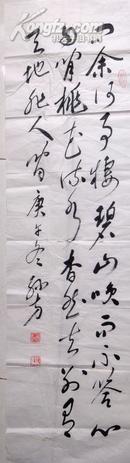 问余何事栖碧山笑而不答心
自闲桃花流水杳然去别有
天地非人间 庚午冬